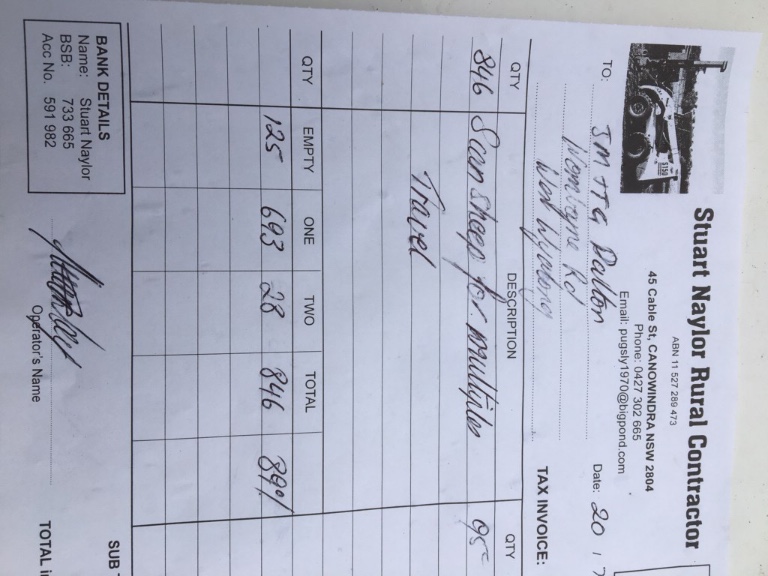 Stuart Naylor Rural Contractor
ABN 11 527 289 473
45 Cable St, CANOWINDRA NSW 2804
Phone: 0427 302 665
Email: pugsly1970@bigpond.com
TO: Dalton Date: 20 / 7
Rd
West Wyalong TAX INVOICE:
QTY DESCRIPTION QTY
846 Scan sheep for multiples 95c
Travel
QTY EMPTY ONE TWO TOTAL
125 693 28 846 89%
SUB
BANK DETAILS
Name: Stuart Naylor
BSB: 733 665
Acc No. 591 982
Operator's Name
TOTAL